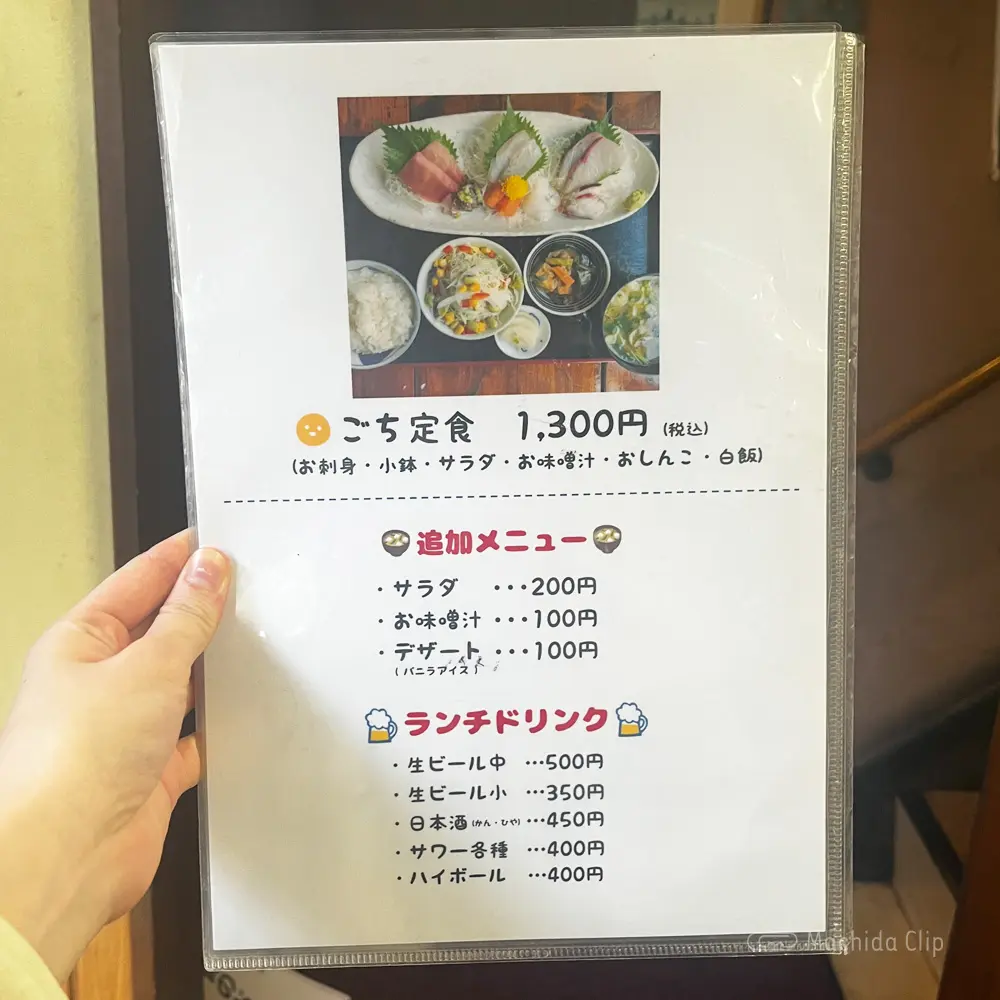 ごち定食　1,300円 (税込)
(お刺身・小鉢・サラダ・お味噌汁・おしんこ・白飯)
追加メニュー
・サラダ　・・・200円
・お味噌汁　・・・100円
・デザート　・・・100円
(バニラアイス)
ランチドリンク
・生ビール中　…500円
・生ビール小　…350円
・日本酒(かん・ひや)…450円
・サワー各種　…400円
・ハイボール　…400円
Machida Clip